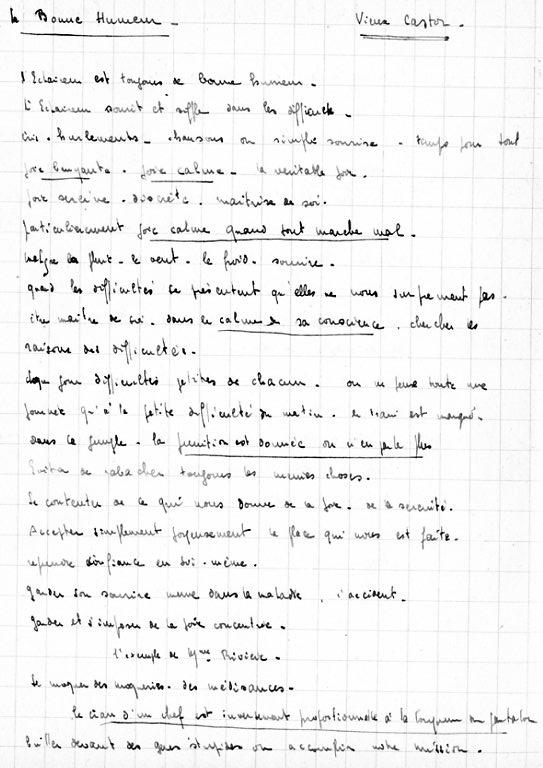 la Bonne Humeur - Vieux Castor -
l'Eclaireur est toujours de bonne humeur -
L'Eclaireur sourit et siffle dans les difficultés -
cris - hurlements - chansons ou simple sourire - temps pour tout
joie bruyante - joie calme - la véritable joie -
joie sereine - discrète - maîtrise de soi -
particulièrement joie calme quand tout marche mal -
malgré la pluie - le vent - le froid - sourire -
quand les difficultés se présentent qu'elles ne nous surprennent pas -
être maître de soi - dans le calme de sa conscience - chercher les
raisons des difficultés -
chaque jour difficultés petites de chacun - on ne pense toute une
journée qu'à la petite difficulté du matin - le train est manqué -
dans la jungle - la punition est donnée on n'en parle plus
Eviter de rabacher toujours les mêmes choses -
Se contenter de ce qui nous donne de la joie - de la sérénité -
Accepter simplement joyeusement la place qui nous est faite -
reprendre confiance en soi-même -
garder son sourire même dans la maladie, l'accident -
garder et s'imposer de la joie concentrée -
l'exemple de Mme Rivière -
Se moquer des moqueries - des médisances -
Le cran d'un chef est inversement proportionnelle à la longueur du pantalon
devant des gens stupides on accomplir notre mission -